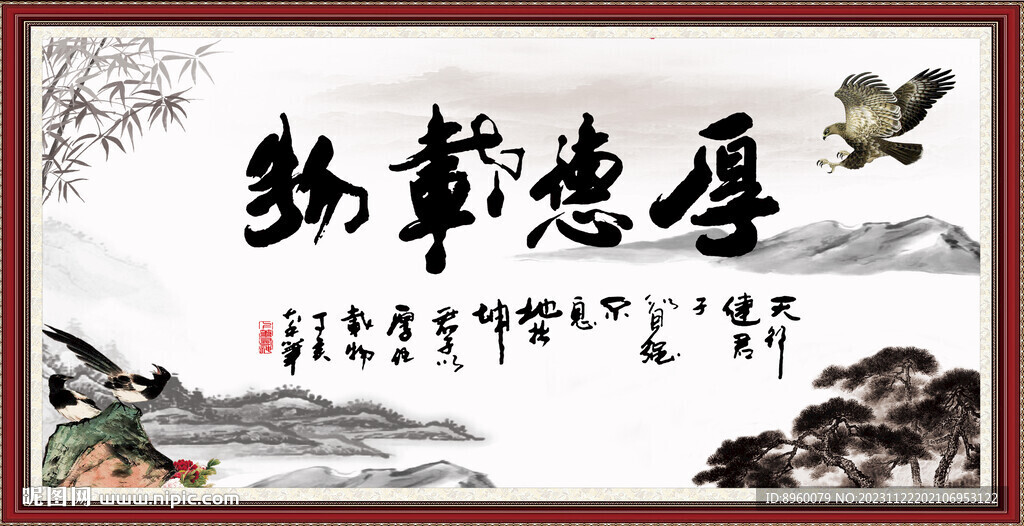 厚德載物
天行
健君
子
以自强
不
息
地势
坤
君子以
厚德
載物
丁亥
昵图网 www.nipic.com
ID:8960079 NO:20231122202106953122